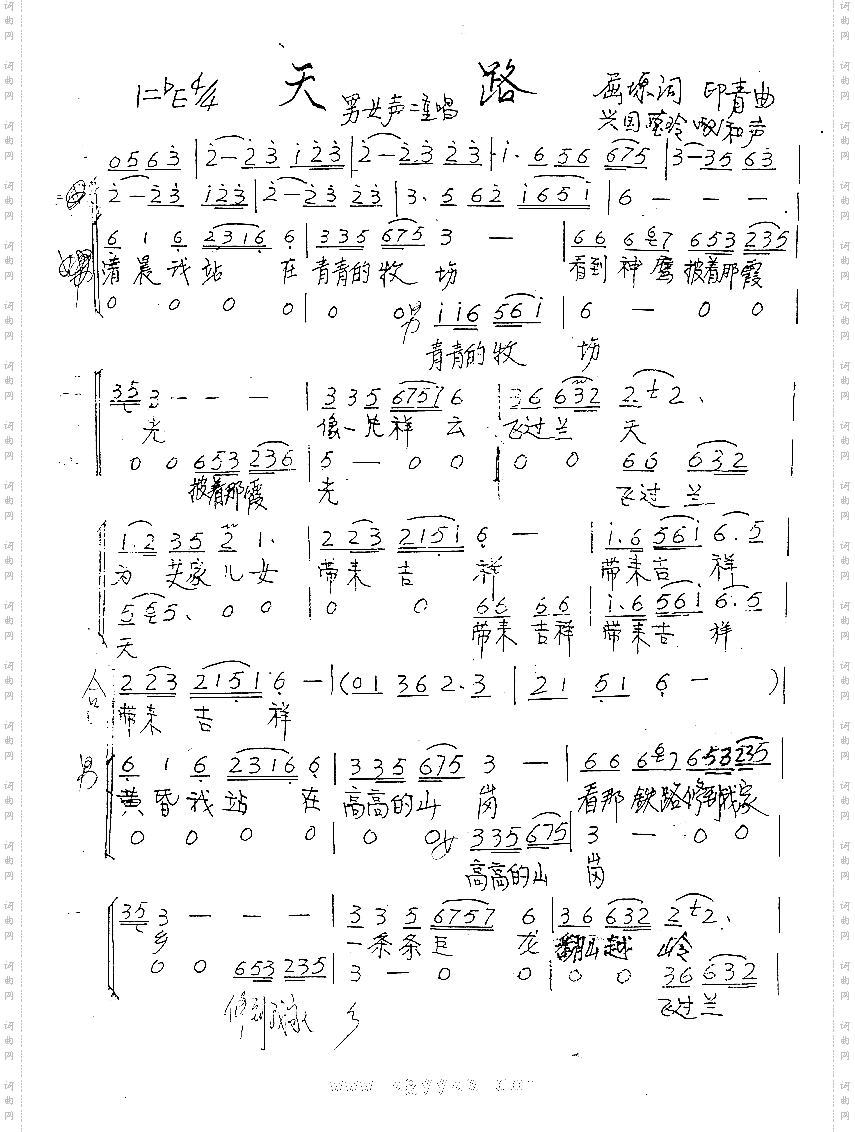 天 路
1=♭E 4/4
男女声二重唱
屈塬词 印青曲
兴国 和声
0 5 6 3 | 2 — 2 3 1 2 3 | 2 — 2 3 2 3 | 1. 6 5 6 6 7 5 | 3 — 3 5 6 3 |
2 — 2 3 1 2 3 | 2 — 2 3 2 3 | 3. 5 6 2 1 6 5 1 | 6 — — — |
6 1 6 2 3 1 6 6 | 3 3 5 6 7 5 3 — | 6 6 6 6 7 6 5 3 2 3 5 |
清晨我站 在 青青的牧 场 看到神鹰披着那霞
0 0 0 0 | 0 0 男 1 1 6 5 6 1 | 6 — 0 0 |
青青的牧 场
3 5 3 — — — | 3 3 5 6 7 5 7 6 | 3 6 6 3 2 2 2. |
光 像一片祥 云 飞过兰 天
0 0 6 5 3 2 3 6 | 5 — 0 0 | 0 0 6 6 6 3 2 |
披着那霞 光 飞过兰
1. 2 3 5 2 1. | 2 2 3 2 1 5 1 6 — | 1. 6 5 6 1 6. 5 |
为 家儿女 带来 吉 祥 带来吉 祥
5 6 5. 0 0 | 0 0 6 6 6 6 | 1. 6 5 6 1 6. 5 |
天 带来 吉祥 带来吉 祥
合 2 2 3 2 1 5 1 6 — | (0 1 3 6 2. 3 | 2 1 5 1 6 — ) |
带来 吉 祥
男 6 1 6 2 3 1 6 6 | 3 3 5 6 7 5 3 — | 6 6 6 6 7 6 5 3 2 3 5 |
黄昏我站 在 高高的山 岗 看那铁路修到我家
0 0 0 0 | 0 0 女 3 3 5 6 7 5 | 3 — 0 0 |
高高的山 岗
3 5 3 — — — | 3 3 5 6 7 5 7 6 | 3 6 6 3 2 2 2. |
乡 一条条巨 龙 翻山越 岭
0 0 6 5 3 2 3 5 | 3 — 0 0 | 0 0 3 6 6 3 2 |
修到我家 乡 飞过兰
词曲网